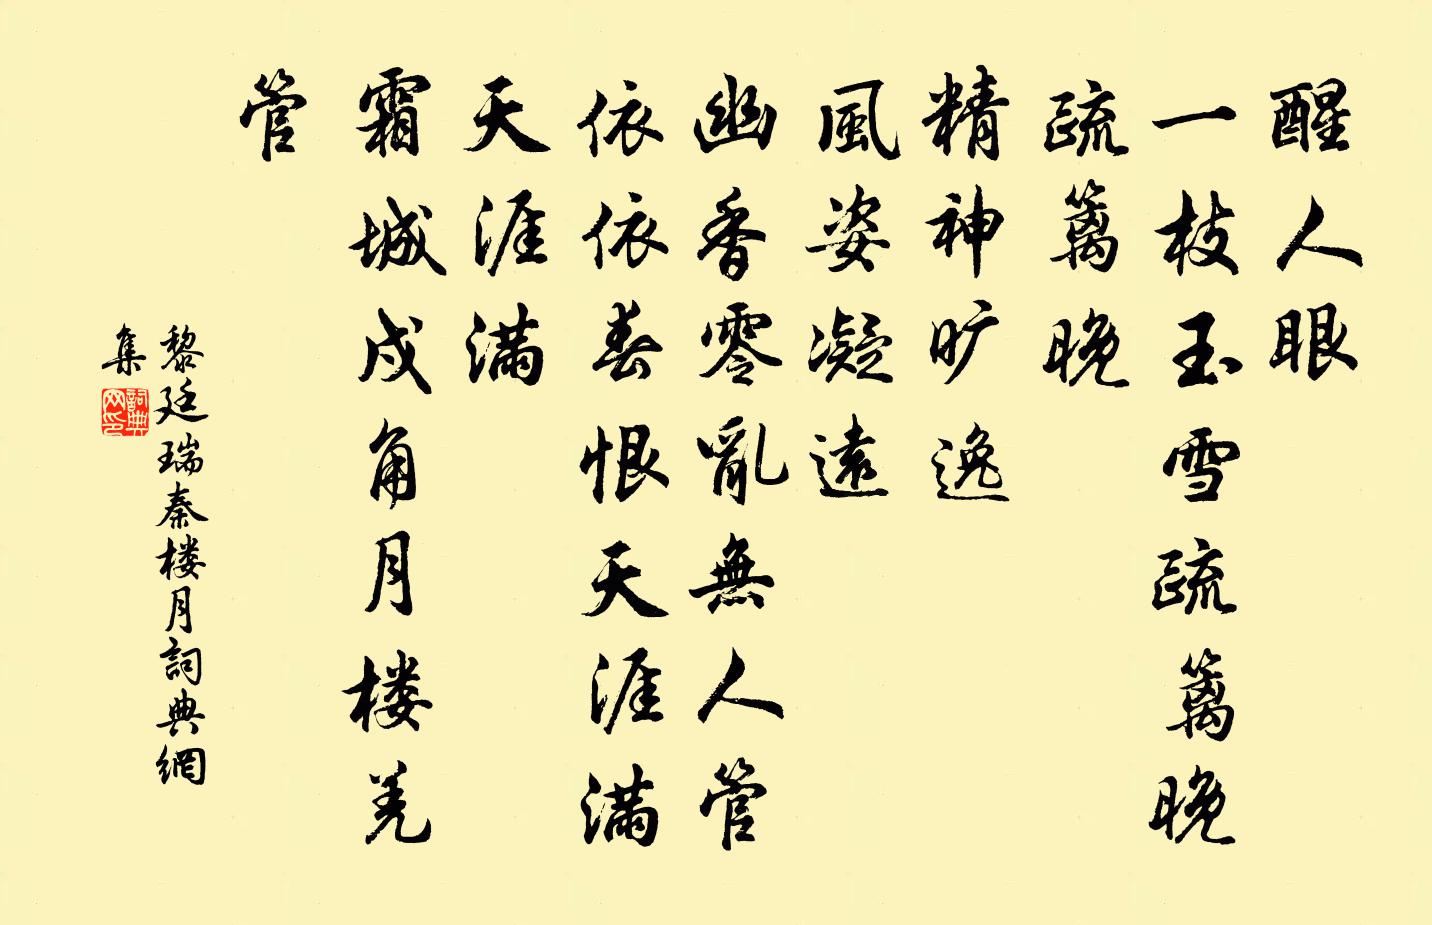 醒人眼
一枝玉雪疏篱晚
疏篱晚
精神旷逸
風姿凝遠
幽香零亂無人管
依依春恨天涯滿
天涯滿
霜城戍角月楼羌
管
黎廷瑞秦楼月詞典網
集
詞典網印